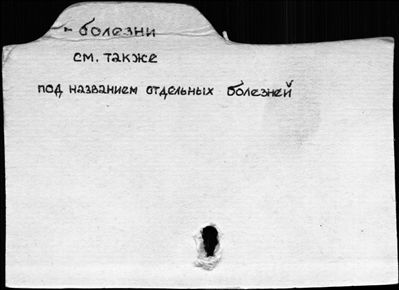 - болезни
см. также
под названием отдельных болезней